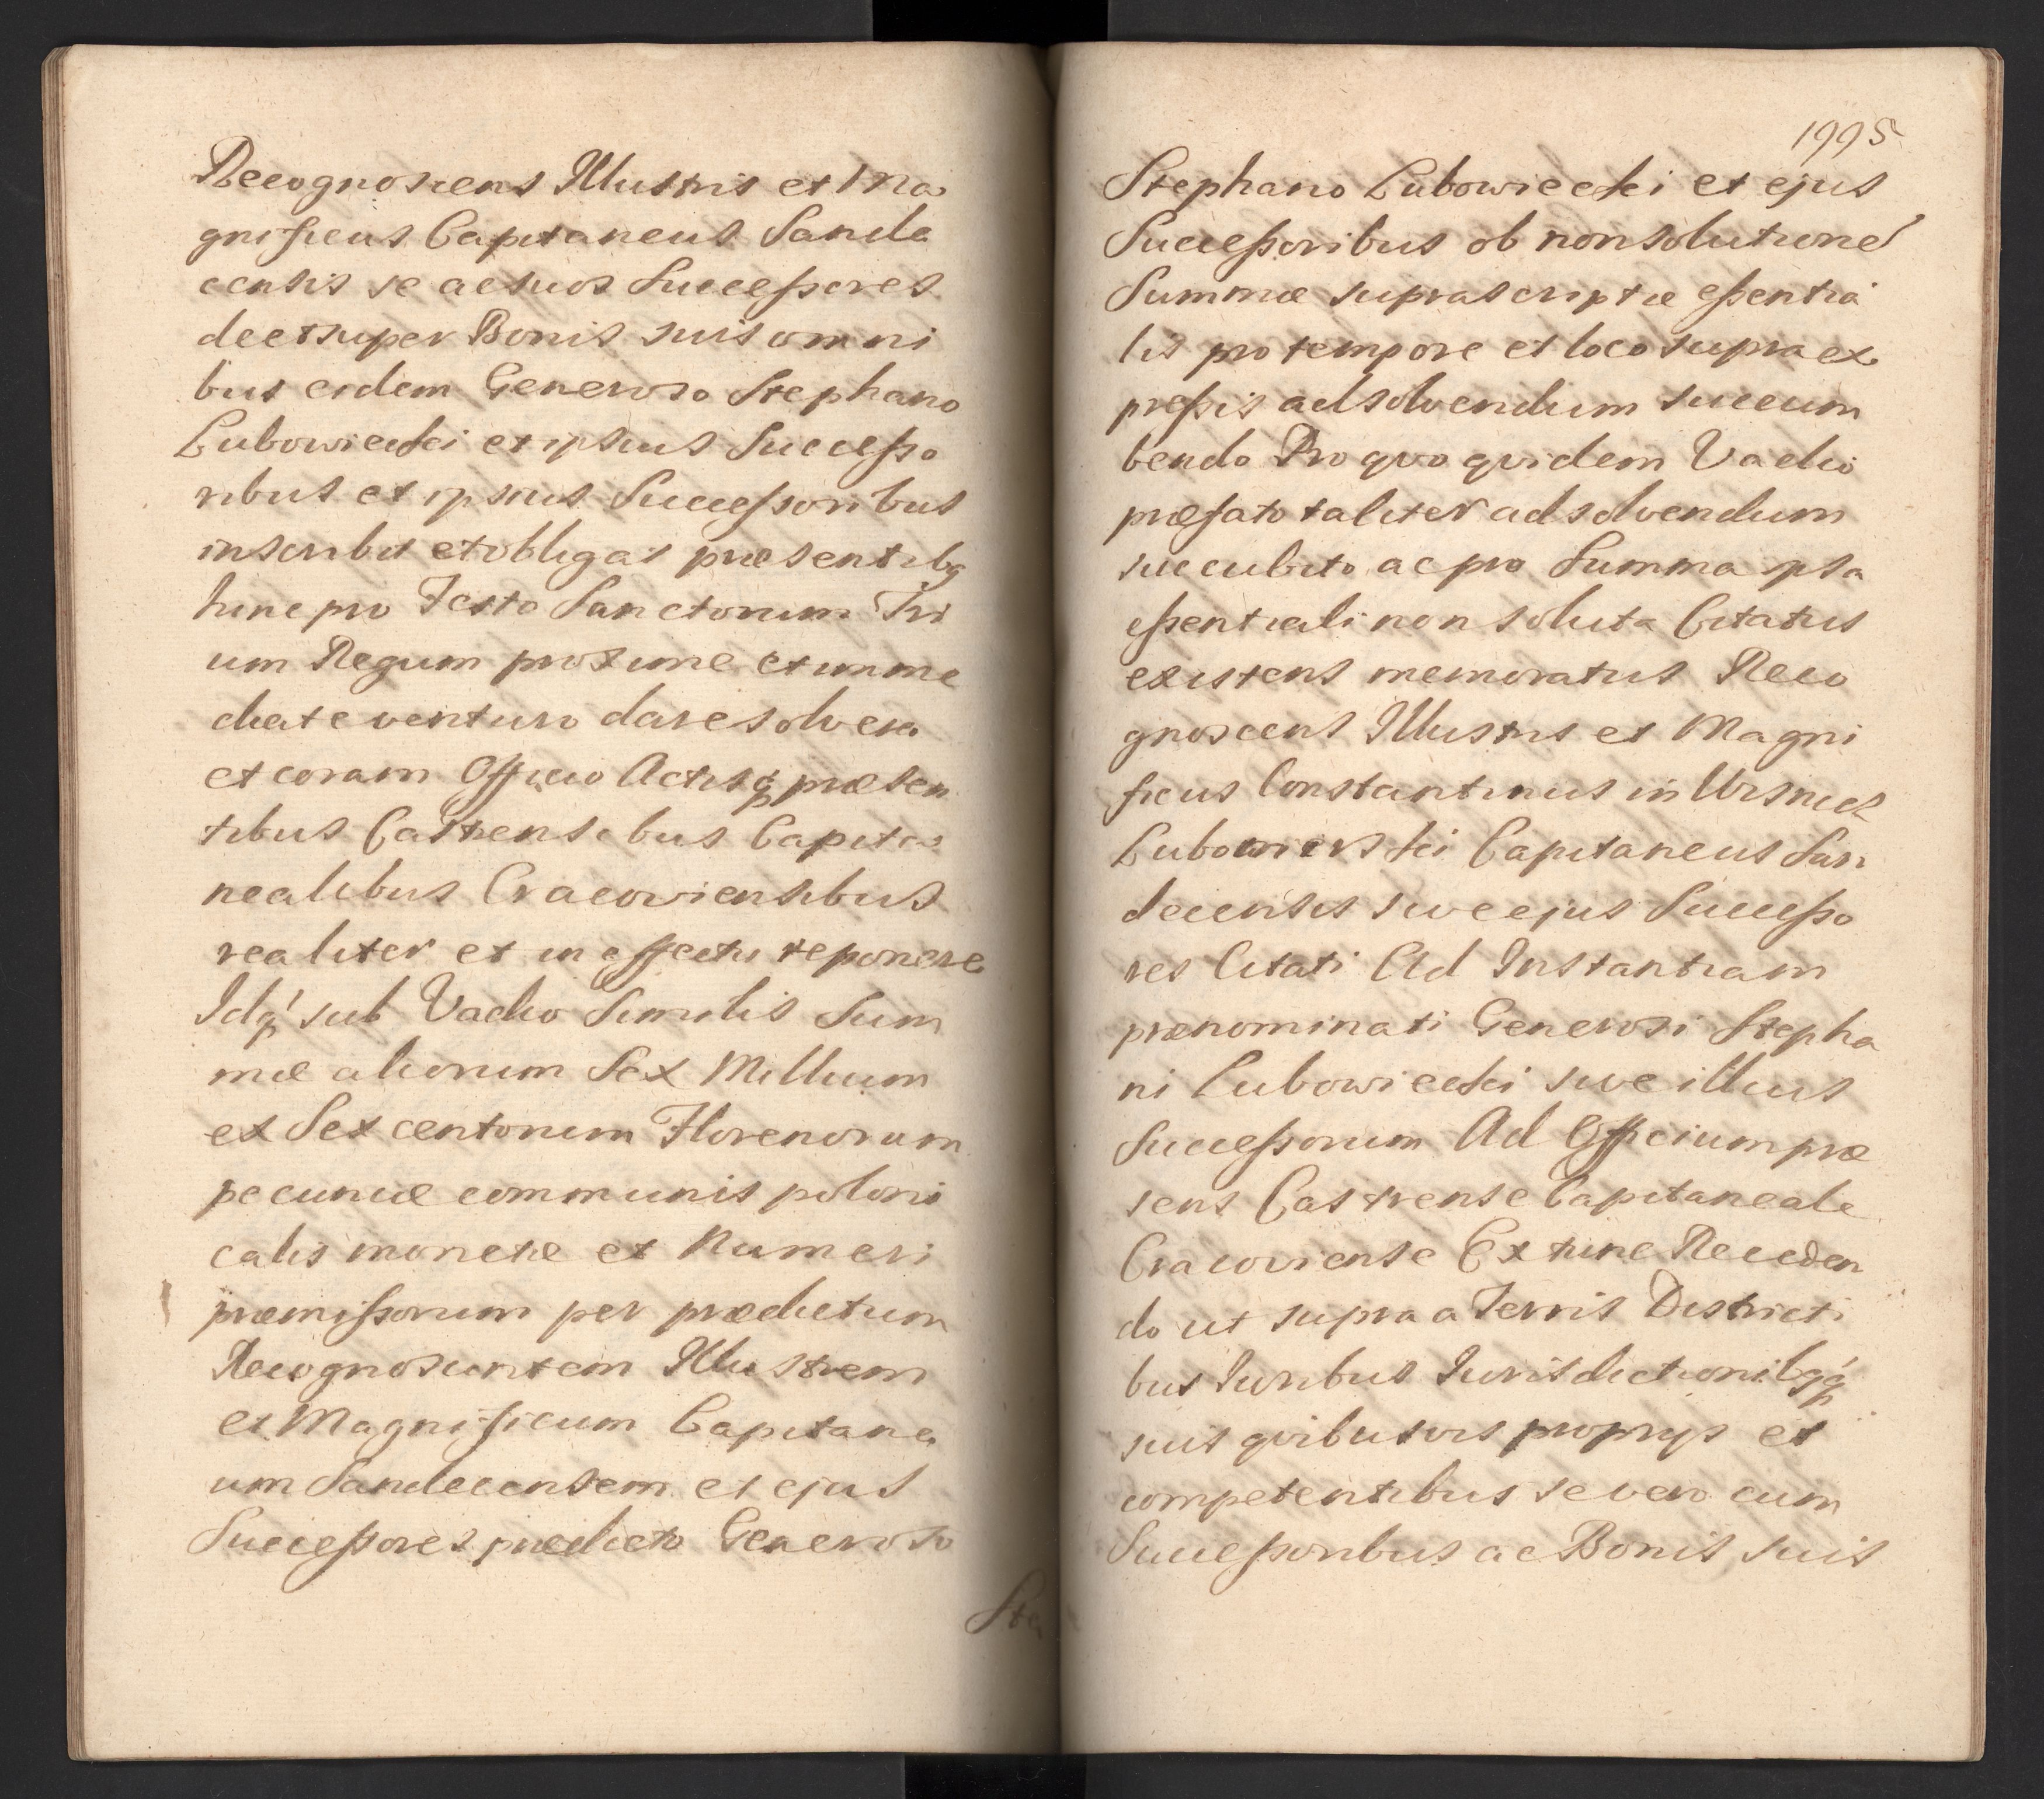 Recognoscens Illustris et Ma
gnificus Capitaneus Sande
censis se ac suos Successores
de et super Bonis suis omni
bus eidem Generoso Stephano
Lubowiecki et ipsius Successo
ribus et ipsius Successoribus
inscribit et obligat præsentibq
hinc pro Festo Sanctorum Tri
um Regum proxime et imme
diate venturo dare solvere
et coram Officio Actisq præsen
tibus Castrensibus Capita
nealibus Cracoviensibus
realiter et in effectu reponere
Idq sub Vadio Similis Sum
mæ aliorum Sex Millium
ex Sex centorum Florenorum
pecuniæ communis poloni
calis monetæ et Numeri
præmissorum per prædictum
Recognoscentem Illustrem
et Magnificum Capitane
um Sandecensem et ejus
Successores prædicto Generoso
Ste
1995
Stephano Lubowiecki et ejus
Successoribus ob non solutione
Summæ supra scriptæ essentia
lis pro tempore et loco supra ex
pressis ad solvendum succum
bendo Pro qvo qvidem Vadio
præfato taliter ad solvendum
succubito ac pro Summa ipsa
essentiali non soluta Citatus
existens memoratus Reco
gnoscens Illustris et Magni
ficus Constantinus in Wisnicz
Lubomirski Capitaneus San
decensis sive ejus Successo
res Citati Ad Instantiam
prænominati Generosi Stepha
ni Lubowiecki sive illius
Successorum Ad Officium præ
sens Castrense Capitaneale
Cracoviense Ex tunc Receden
do ut supra a Terris Districti
bus Iuribus Iurisdictionibqq
suis qvibusvis proprys et
competentibus se vero cum
Successoribus ac Bonis suis